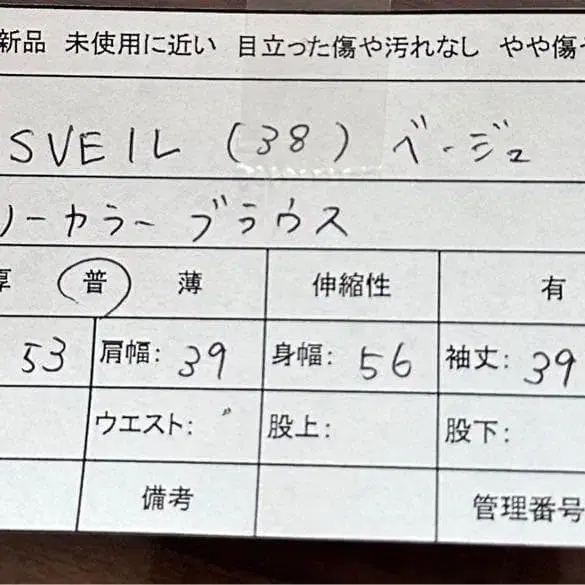 新品 未使用に近い 目立った傷や汚れなし やや傷や
SVEIL (38) ベージュ
リーカラーブラウス
厚 普 薄 伸縮性 有
53 肩幅: 39 身幅: 56 袖丈: 39
ウエスト: 股上: 股下:
備考 管理番号